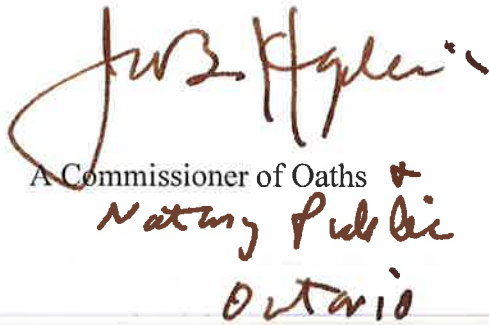 A Commissioner of Oaths &
Notary Public
Ontario